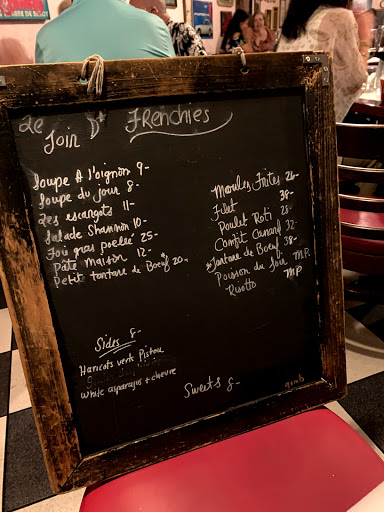 Le Join D*
Frenchies
Soupe A l'oignon 9-
Soupe du jour 8-
Les escargots 11-
Salade Shannon 10-
Foie gras poelée 25-
Pâté Maison 12-
Petit tartare de Boeuf 20-
Moules Frites 26-
Filet 38-
Poulet Roti 28-
Confit Canard 32-
*Tartare de Boeuf 38-
Poisson du Soir M.P.
Risotto MP
Sides 8-
Haricots verts Pistou
White asparagus + chevre
Sweets 8-